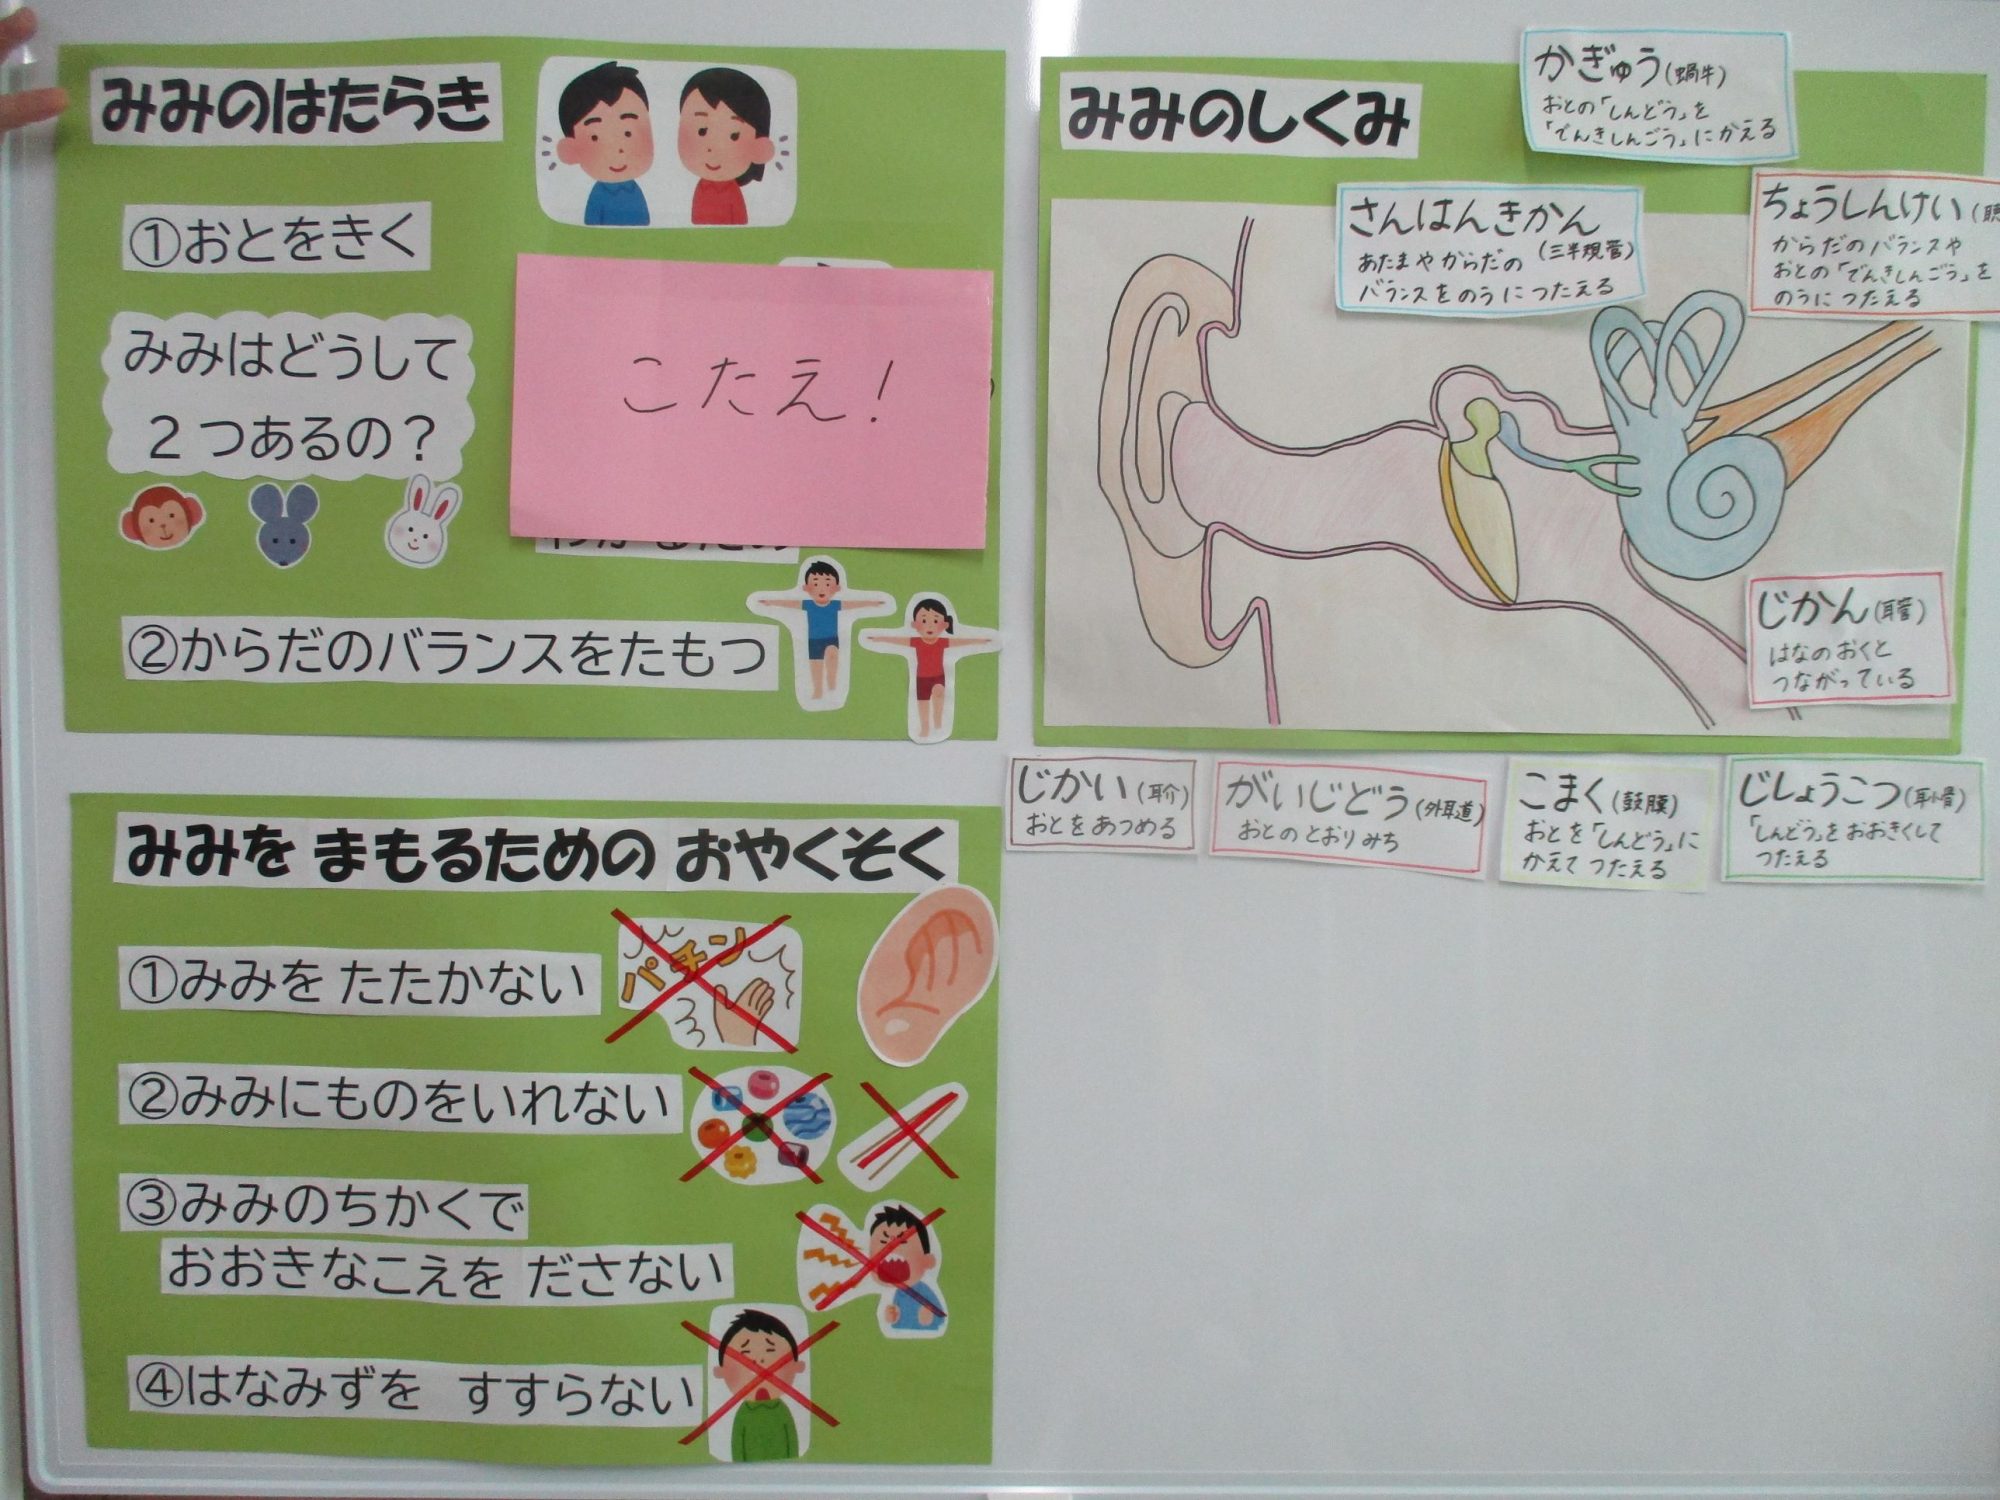 みみのはたらき
①おとをきく
みみはどうして
2つあるの?
こたえ!
②からだのバランスをたもつ
みみのしくみ
かぎゅう(蝸牛)
おとの「しんどう」を
「でんきしんごう」にかえる
さんはんきかん
(三半規管)
あたまやからだの
バランスをのうにつたえる
ちょうしんけい(聴
からだのバランスや
おとの「でんきしんごう」を
のうにつたえる
じかん(耳管)
はなのおくと
つながっている
じかい(耳介)
おとをあつめる
がいじどう(外耳道)
おとのとおりみち
こまく(鼓膜)
おとを「しんどう」に
かえてつたえる
じしょうこつ(耳小骨)
「しんどう」をおおきくして
つたえる
みみを まもるための おやくそく
①みみを たたかない
パチン
②みみにものをいれない
③みみのちかくで
おおきなこえを ださない
④はなみずを すすらない